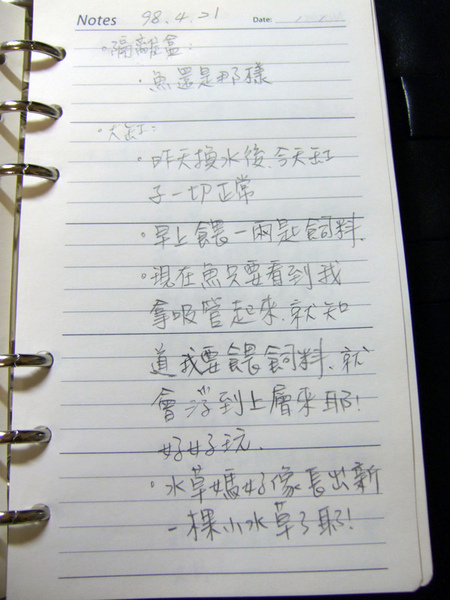 Notes 98.4.21 Date:
·隔離盒:
·魚還是那樣
·大缸:
·昨天換水後,今天缸
子一切正常
·早上餵一兩匙飼料.
·現在魚只要看到我
拿吸管起來,就知
道我要餵飼料,就
會浮到上層來耶!
好好玩.
·水草媽好像長出新
一棵小水草了耶!